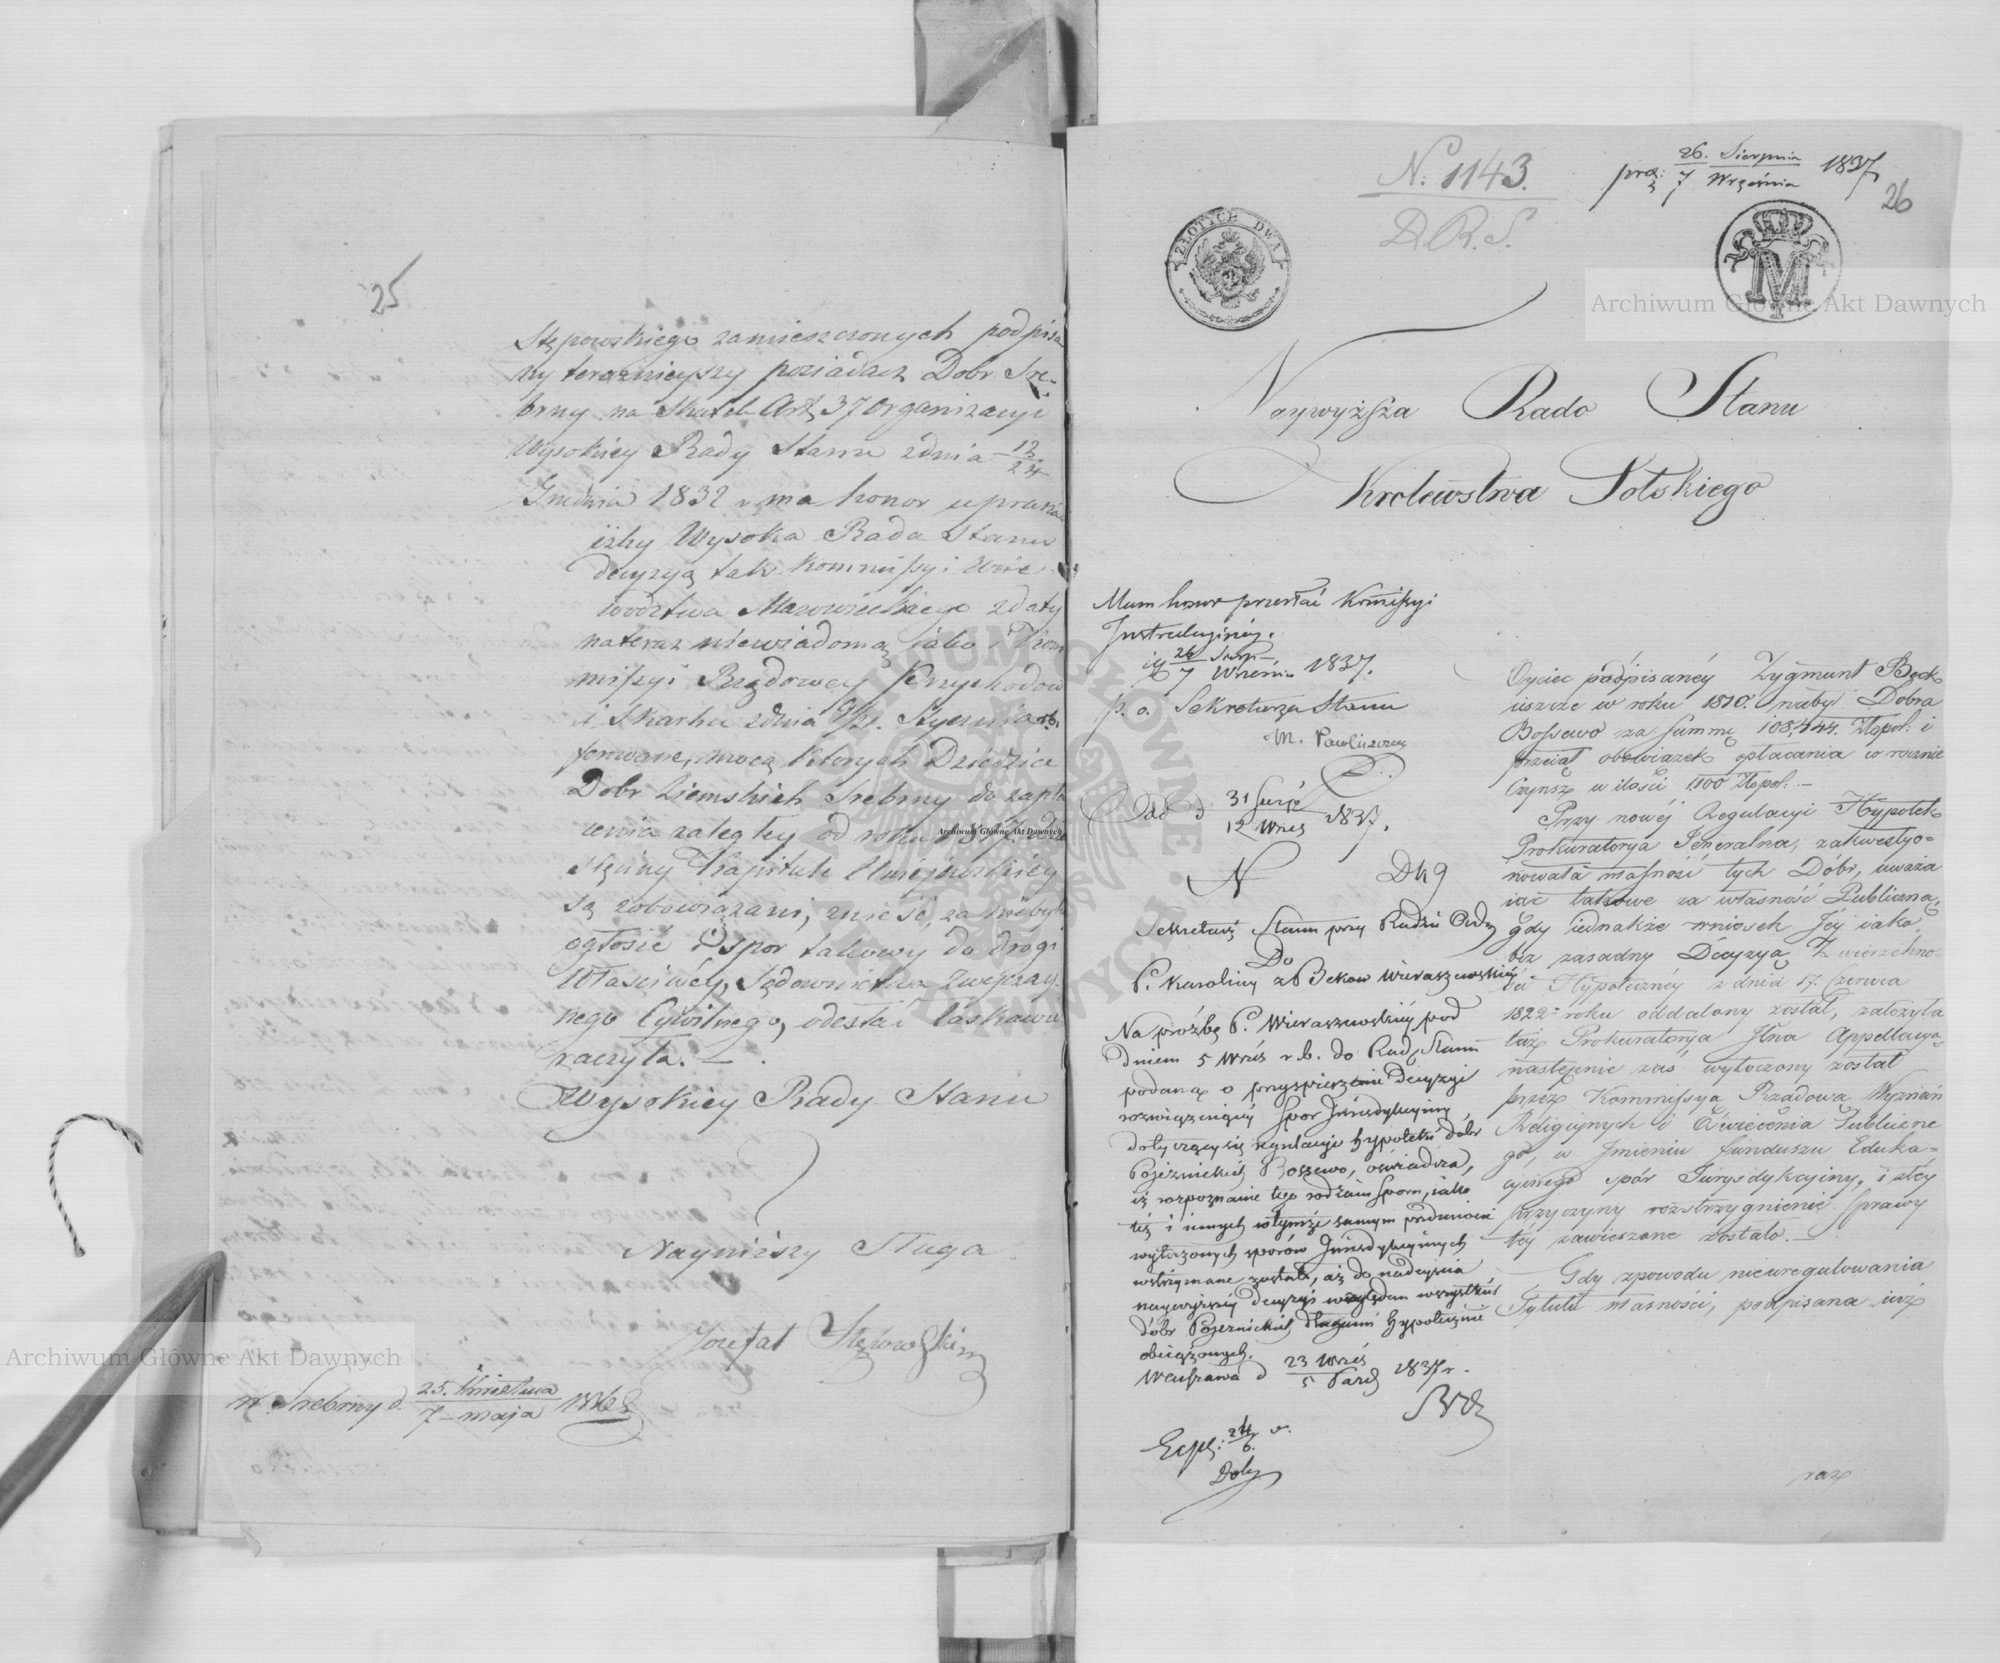 25
Stępowskiego zamieszczonych podpisa
ny teraznieyszy posiadacz Dobr Sre-
brny na skutek Art. 37 Organizacyi
Wysokiey Rady Stanu z dnia 12/24
Grudnia 1832 r. ma honor uprasza
iżby Wysoka Rada Stanu
decyzyą tak Kommissyi Woie
wodztwa Mazowieckiego z daty
nateraz niewiadomą iako i Kom
missyi Rządowey Przychodow
i Skarbu z dnia Stycznia r.b.
ferowane, mocą których Dziedzice
Dobr Ziemskich Srebrny do zapła
cenia zaległey od roku 1817
Kapitule
są zobowiązani, znieść, za niebyłe
ogłosić i spor takowy do drogi
Właściwey, Sądownictwa Zwyczay-
nego Cywilnego, odesłać łaskawie
raczyła. —
Wysokiey Rady Stanu
Nayniższy Sługa
Jozefat Stępowski
w Srebrny d. 25. Kwietnia / 7 maja
N. 1143.
D.R.S.
prez: 26. Sierpnia / 7 Września 1837
26
ZŁOTYCH DWA
M
Naywyższa Rado Stanu
Krolewstwa Polskiego
Mam honor przesłać Kommissyi
Instrukcyiney.
26 Sierp / 7 Wrześni 1837.
p. o. Sekretarza Stanu
M. Pawliszczew
Odd d 31 Sierp / 12 Wrześ 1837.
N
Sekretarz Stanu przy Radzie
Do
P. Karoliny z Beków Wieraszewskiéy
Na prośbę P. Wieraszewskiéy pod
dniem 5 Wrześ r.b. do Rady Stanu
podaną o przyspieszenie Decyzyi
rozwiązuiącéy Spor Jurisdykcyiny
dotyczący się regulacyi hypoteki dóbr
Pojeznickich Bossewo, oświadcza,
iż rozpoznanie tego rodzaiu sporu, iako
też i innych w tymże samym przedmiocie
wytoczonych sporów Jurisdykcyinych
wstrzymane zostało, aż do nadeyścia
naywyższéy decyzyi względem wszystkich
dóbr Pojeznickich długami hypotecznie
obciążonych.
Warszawa d 23 Wrześ / 5 Paźd 1837 r.
Exp: 24/6
Oyciec podpisanéy Zygmunt Beck
ieszcze w roku 1810. nabył Dobra
Bossewo za summę 108,444. Złpol: i
przyiął obowiązek opłacania corocznie
Czynszu w ilości 1100 Złpol. —
Przy nowéy Regulacyi Hypotek
Prokuratorya Jeneralna, zakwestyo-
nowała własność tych Dóbr, uważa
iąc takowe za własność Publiczną,
gdy iednakże wniosek Jéy iako
bez zasadny Decyzyą Zwierzchno-
ści Hypotecznéy z dnia 17. Czerwca
1822 roku oddalony został, założyła
taż Prokuratorya Jlna Appellacyą,
następnie zaś wytoczony został
przez Kommissyą Rządową Wyznań
Religiynych i Oświecenia Publiczne
go, w Jmieniu funduszu Eduka-
cyinego spór Jurysdykcyiny, i z téy
przyczyny rozstrzygnienie Sprawy
téy zawieszone zostało. —
Gdy z powodu nieuregulowania
Tytułu własności, podpisana iuż
raz
Archiwum Główne Akt Dawnych
Archiwum Główne Akt Dawnych
Archiwum Główne Akt Dawnych
ARCHIWUM GŁÓWNE AKT DAWNYCH